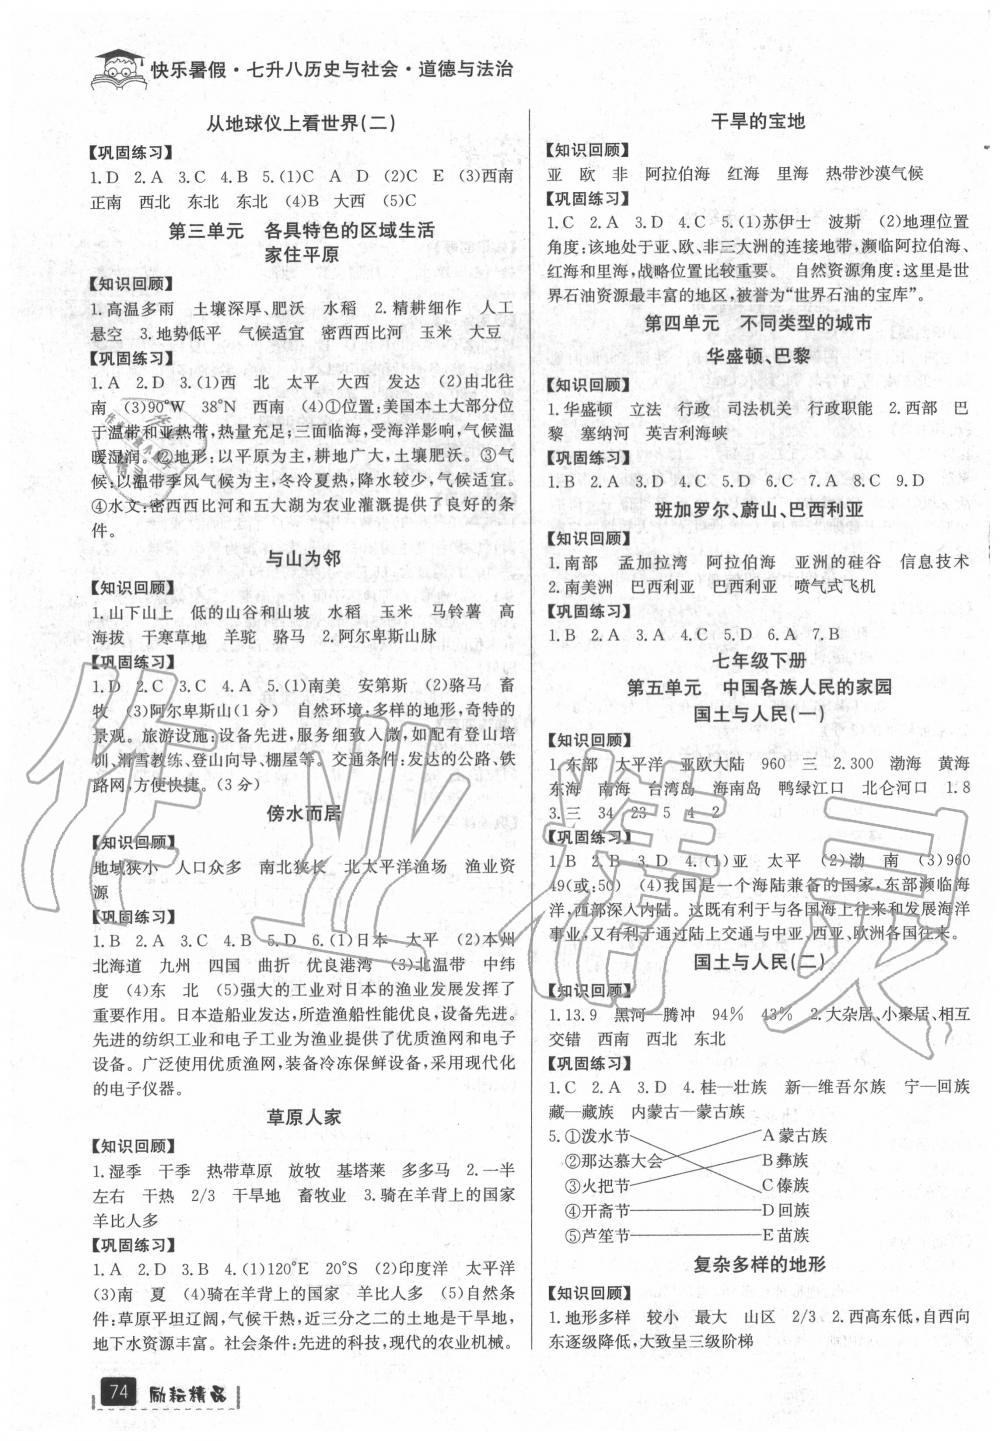 快乐暑假·七升八历史与社会·道德与法治
从地球仪上看世界(二)
【巩固练习】
1.D 2.A 3.C 4.B 5.(1)C A D (2)C E (3)西南
正南 西北 东北 东北 (4)B 大西 (5)C
第三单元 各具特色的区域生活
家住平原
【知识回顾】
1.高温多雨 土壤深厚、肥沃 水稻 2.精耕细作 人工
悬空 3.地势低平 气候适宜 密西西比河 玉米 大豆
【巩固练习】
1.A 2.D 3.(1)西 北 太平 大西 发达 (2)由北往
南 (3)90°W 38°N 西南 (4)①位置:美国本土大部分位
于温带和亚热带,热量充足;三面临海,受海洋影响,气候温
暖湿润。②地形:以平原为主,耕地广大,土壤肥沃。③气
候:以温带季风气候为主,冬冷夏热,降水较少,气候适宜。
④水文:密西西比河和五大湖为农业灌溉提供了良好的条
件。
与山为邻
【知识回顾】
1.山下山上 低的山谷和山坡 水稻 玉米 马铃薯 高
海拔 干寒草地 羊驼 骆马 2.阿尔卑斯山脉
【巩固练习】
1.D 2.C 3.C 4.A 5.(1)南美 安第斯 (2)骆马 畜
牧 (3)阿尔卑斯山(1分) 自然环境:多样的地形,奇特的
景观。旅游设施:设备先进,服务细致入微,如配有登山培
训、滑雪教练、登山向导、棚屋等。交通条件:发达的公路、铁
路网,方便快捷。(3分)
傍水而居
【知识回顾】
地域狭小 人口众多 南北狭长 北太平洋渔场 渔业资
源
【巩固练习】
1.B 2.A 3.C 4.B 5.D 6.(1)日本 太平 (2)本州
北海道 九州 四国 曲折 优良港湾 (3)北温带 中纬
度 (4)东 北 (5)强大的工业对日本的渔业发展发挥了
重要作用。日本造船业发达,所造渔船性能优良,设备先进。
先进的纺织工业和电子工业为渔业提供了优质渔网和电子
设备。广泛使用优质渔网、装备冷冻保鲜设备,采用现代化
的电子仪器。
草原人家
【知识回顾】
1.湿季 干季 热带草原 放牧 基塔莱 多多马 2.一半
左右 干热 2/3 干旱地 畜牧业 3.骑在羊背上的国家
羊比人多
【巩固练习】
1.A 2.D 3.B 4.(1)120°E 20°S (2)印度洋 太平洋
(3)南 夏 (4)骑在羊背上的国家 羊比人多 (5)自然条
件:草原平坦辽阔,气候干热,近三分之二的土地是干旱地,
地下水资源丰富。社会条件:先进的科技,现代的农业机械。
74 励耘精品
干旱的宝地
【知识回顾】
亚 欧 非 阿拉伯海 红海 里海 热带沙漠气候
【巩固练习】
1.C 2.A 3.D 4.C 5.(1)苏伊士 波斯 (2)地理位置
角度:该地处于亚、欧、非三大洲的连接地带,濒临阿拉伯海、
红海和里海,战略位置比较重要。 自然资源角度:这里是世
界石油资源最丰富的地区,被誉为“世界石油的宝库”。
第四单元 不同类型的城市
华盛顿、巴黎
【知识回顾】
1.华盛顿 立法 行政 司法机关 行政职能 2.西部 巴
黎 塞纳河 英吉利海峡
【巩固练习】
1.B 2.A 3.D 4.C 5.D 6.C 7.A 8.C 9.D
班加罗尔、蔚山、巴西利亚
【知识回顾】
1.南部 孟加拉湾 阿拉伯海 亚洲的硅谷 信息技术
2.南美洲 巴西利亚 巴西利亚 喷气式飞机
【巩固练习】
1.B 2.A 3.A 4.C 5.D 6.A 7.B
七年级下册
第五单元 中国各族人民的家园
国土与人民(一)
【知识回顾】
1.东部 太平洋 亚欧大陆 960 三 2.300 渤海 黄海
东海 南海 台湾岛 海南岛 鸭绿江口 北仑河口 1.8
3.三 34 23 5 4 2
【巩固练习】
1.B 2.B 3.D 4.(1)亚 太平 (2)渤 南 (3)960
49(或:50) (4)我国是一个海陆兼备的国家,东部濒临海
洋,西部深入内陆。这既有利于与各国海上往来和发展海洋
事业,又有利于通过陆上交通与中亚、西亚、欧洲各国往来。
国土与人民(二)
【知识回顾】
1.13.9 黑河—腾冲 94% 43% 2.大杂居、小聚居、相互
交错 西南 西北 东北
【巩固练习】
1.C 2.A 3.D 4.桂—壮族 新—维吾尔族 宁—回族
藏—藏族 内蒙古—蒙古族
5.①泼水节 A 蒙古族
②那达慕大会 B 彝族
③火把节 C 傣族
④开斋节 D 回族
⑤芦笙节 E 苗族
复杂多样的地形
【知识回顾】
1.地形多样 较小 最大 山区 2/3 2.西高东低,自西向
东逐级降低,大致呈三级阶梯
作业精灵